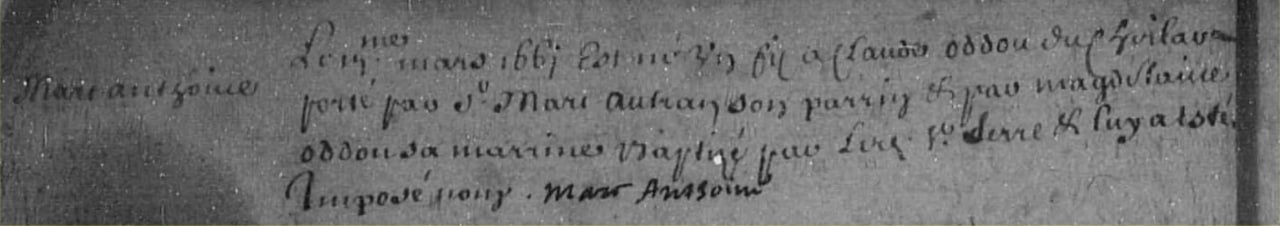 Marc anthoine
Le iij me mars 1661 Est né Un filz a Claude oddou du
porté par Sr Marc autran son parrin & par magdelaine
oddou sa marrine Baptizé par Serre & luy a esté
Imposé nom . Marc Anthoine